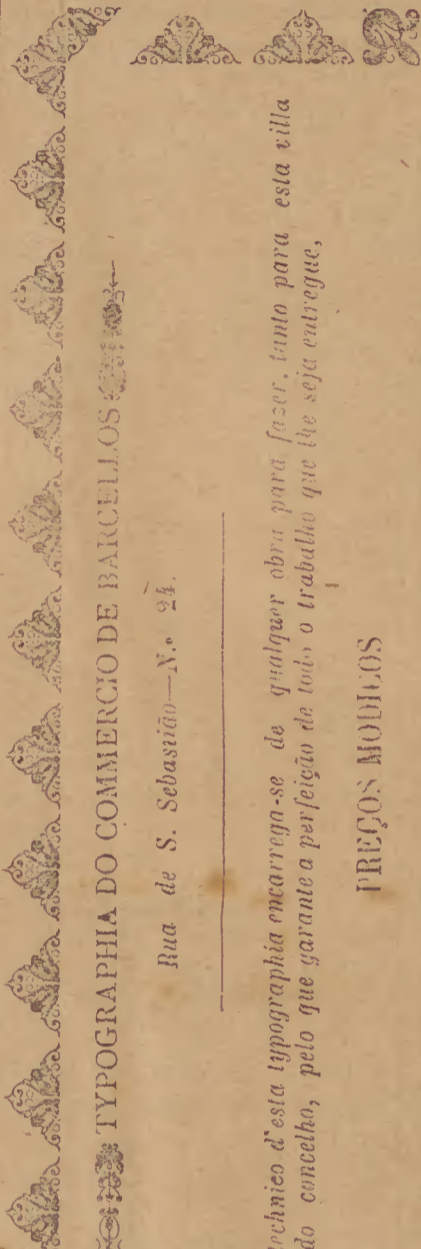 TYPOGRAPHIA DO COMMERCIO DE BARCELLOS
Rua de S. Sebastião—N.º 24.
technico d'esta typographia encarrega-se de qualquer obra para fazer, tanto para esta villa
do concelho, pelo que garante a perfeição de todo o trabalho que lhe seja entregue,
PREÇOS MODICOS